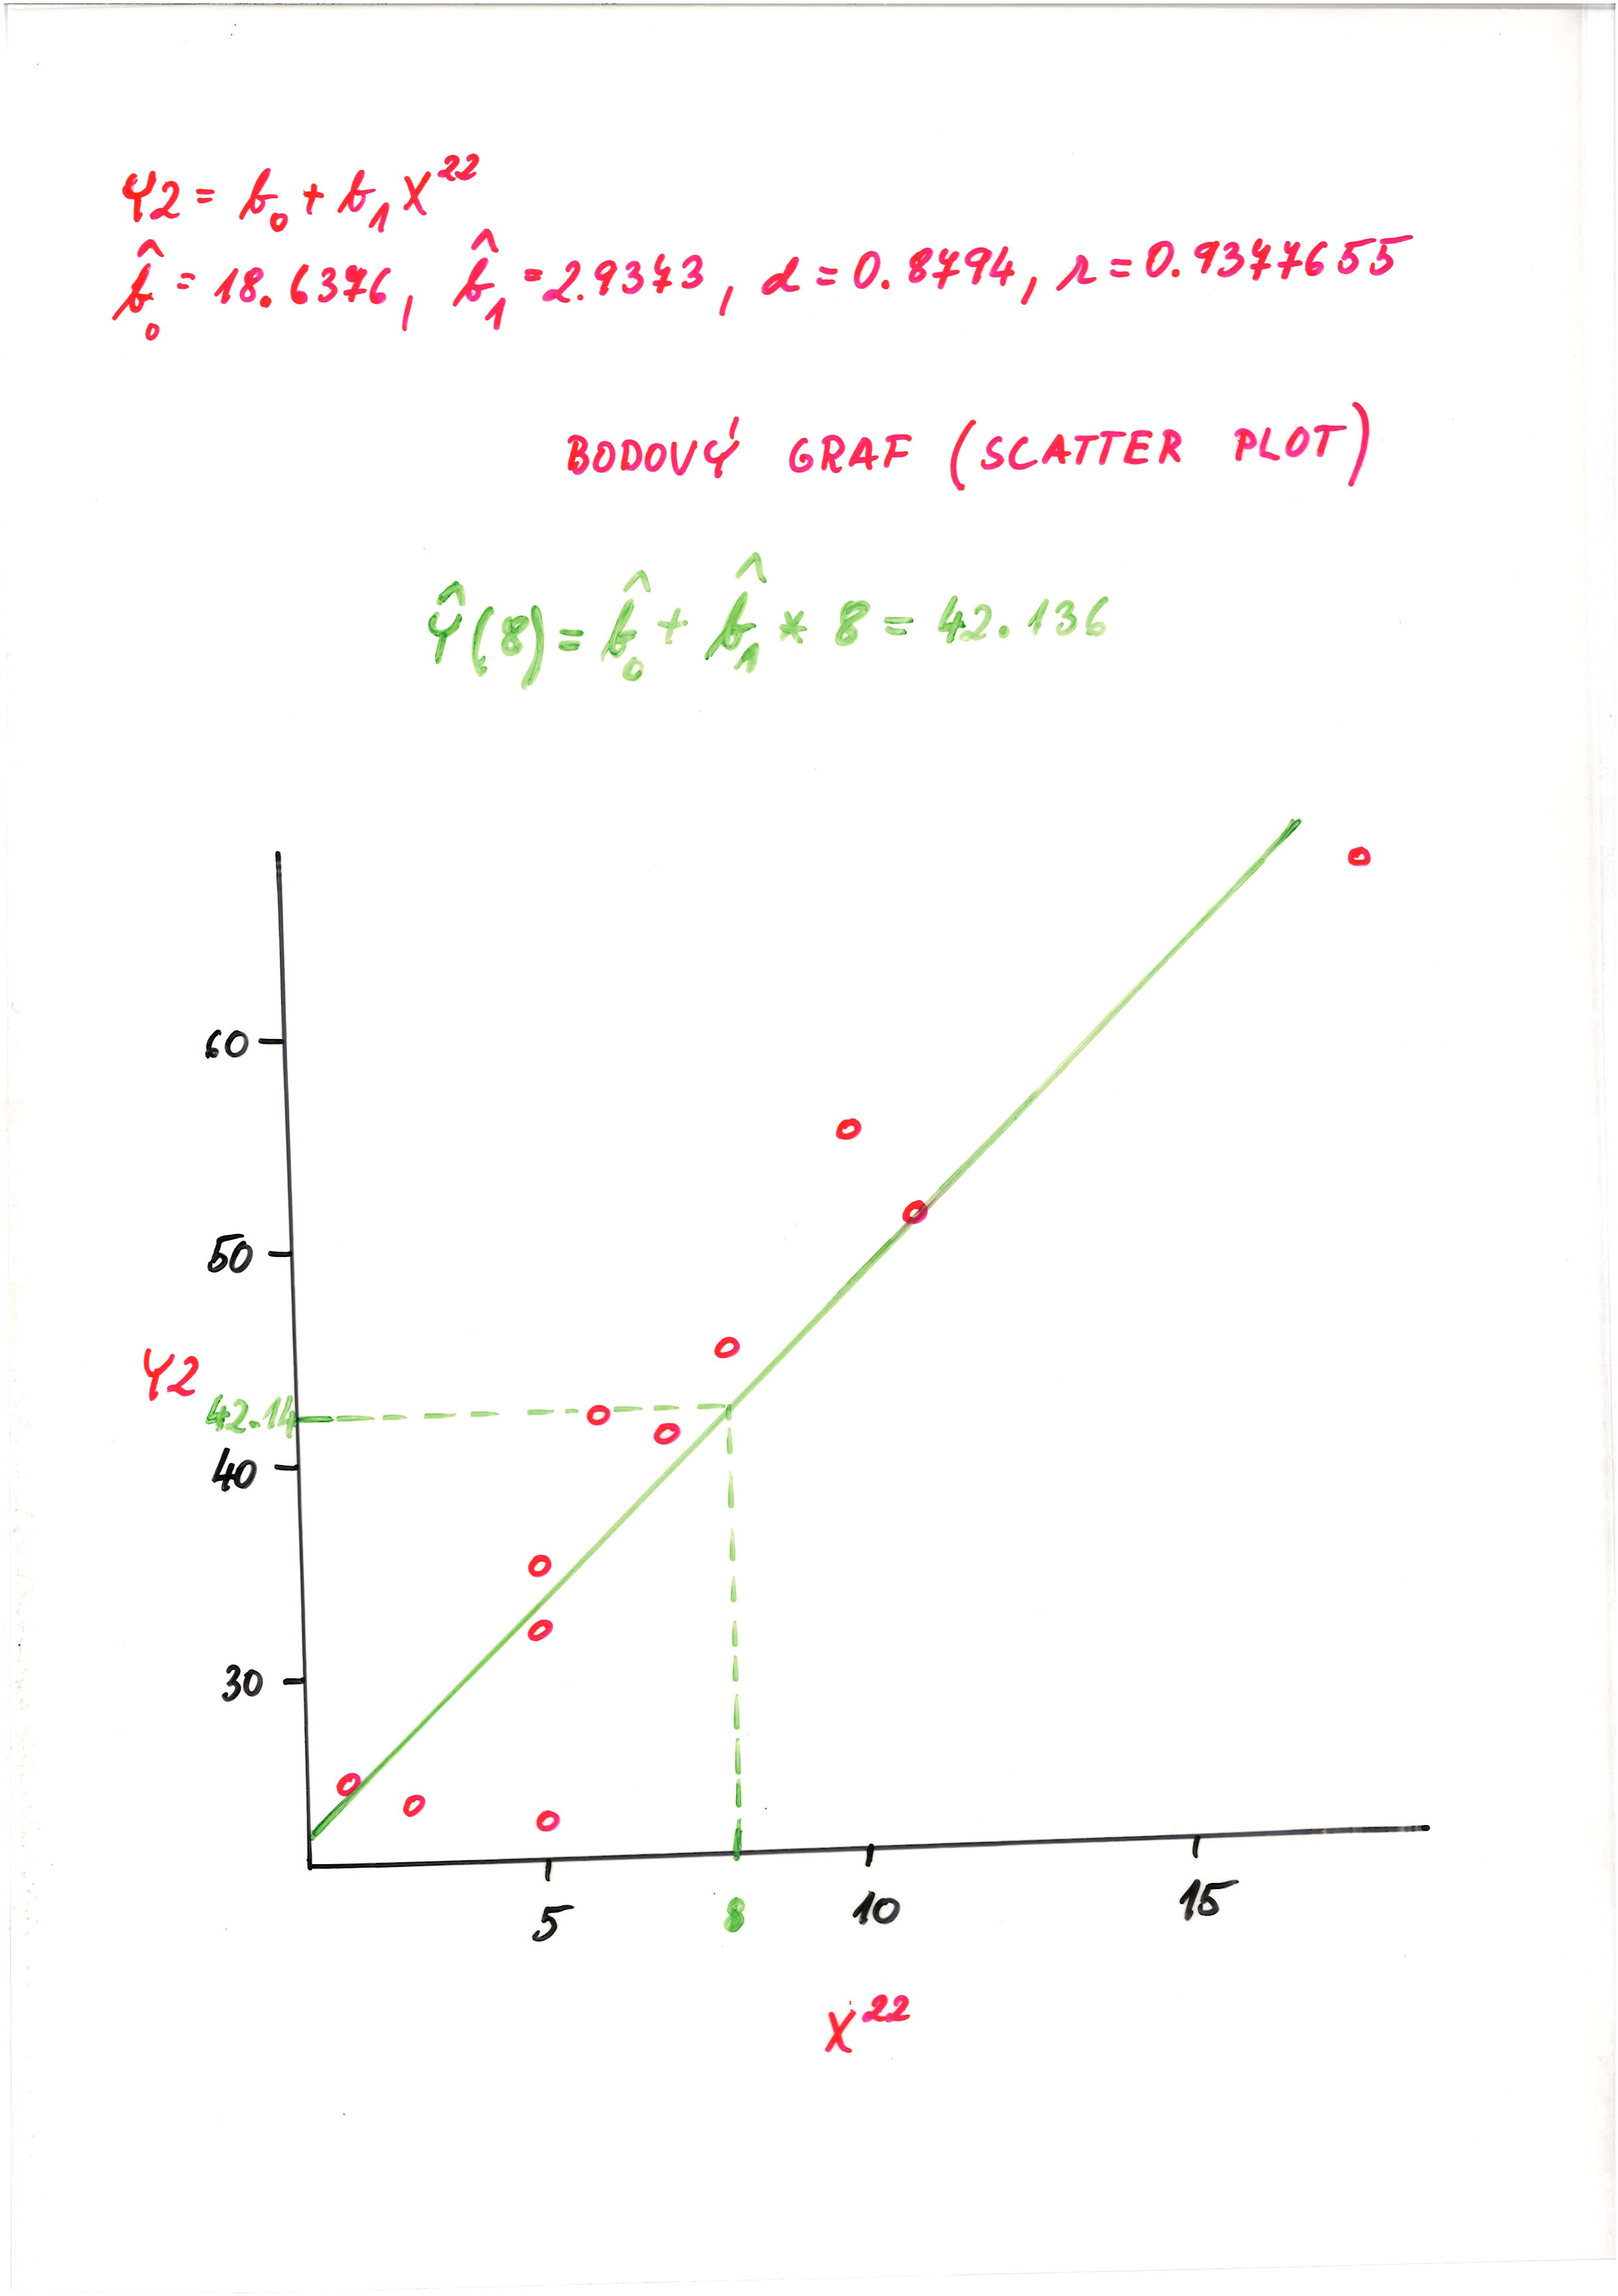 Y2 = b₀ + b₁ X²²
b̂₀ = 18.6376, b̂₁ = 2.9373, d = 0.8794, r = 0.9377655
BODOVÝ GRAF (SCATTER PLOT)
Ŷ(8) = b̂₀ + b̂₁ * 8 = 42.136
60
50
Y2
42.14
40
30
5
8
10
15
X²²